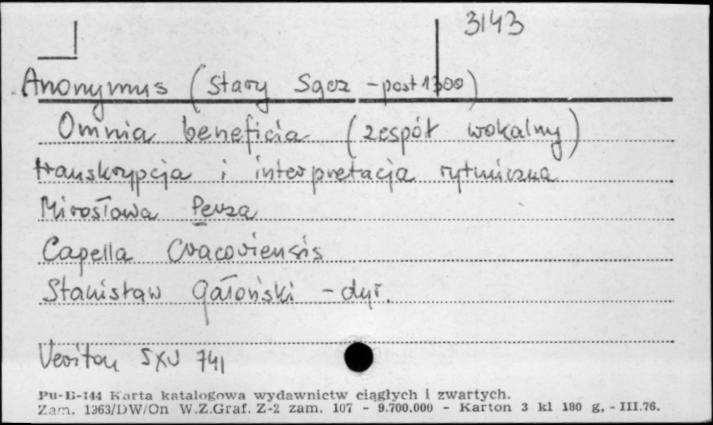 3143
Anonymus (Stary Sącz - post 1300)
Omnia beneficia (zespół wokalny)
transkrypcja i interpretacja rytmiczna
Mirosława Perza
Capella Cracoviensis
Stanisław Gałoński - dyr.
Veriton SXV 741
Pu-B-144 Karta katalogowa wydawnictw ciągłych i zwartych.
Zam. 1363/DW/On W.Z.Graf. Z-2 zam. 107 - 9.700.000 - Karton 3 kl 180 g. - III.76.